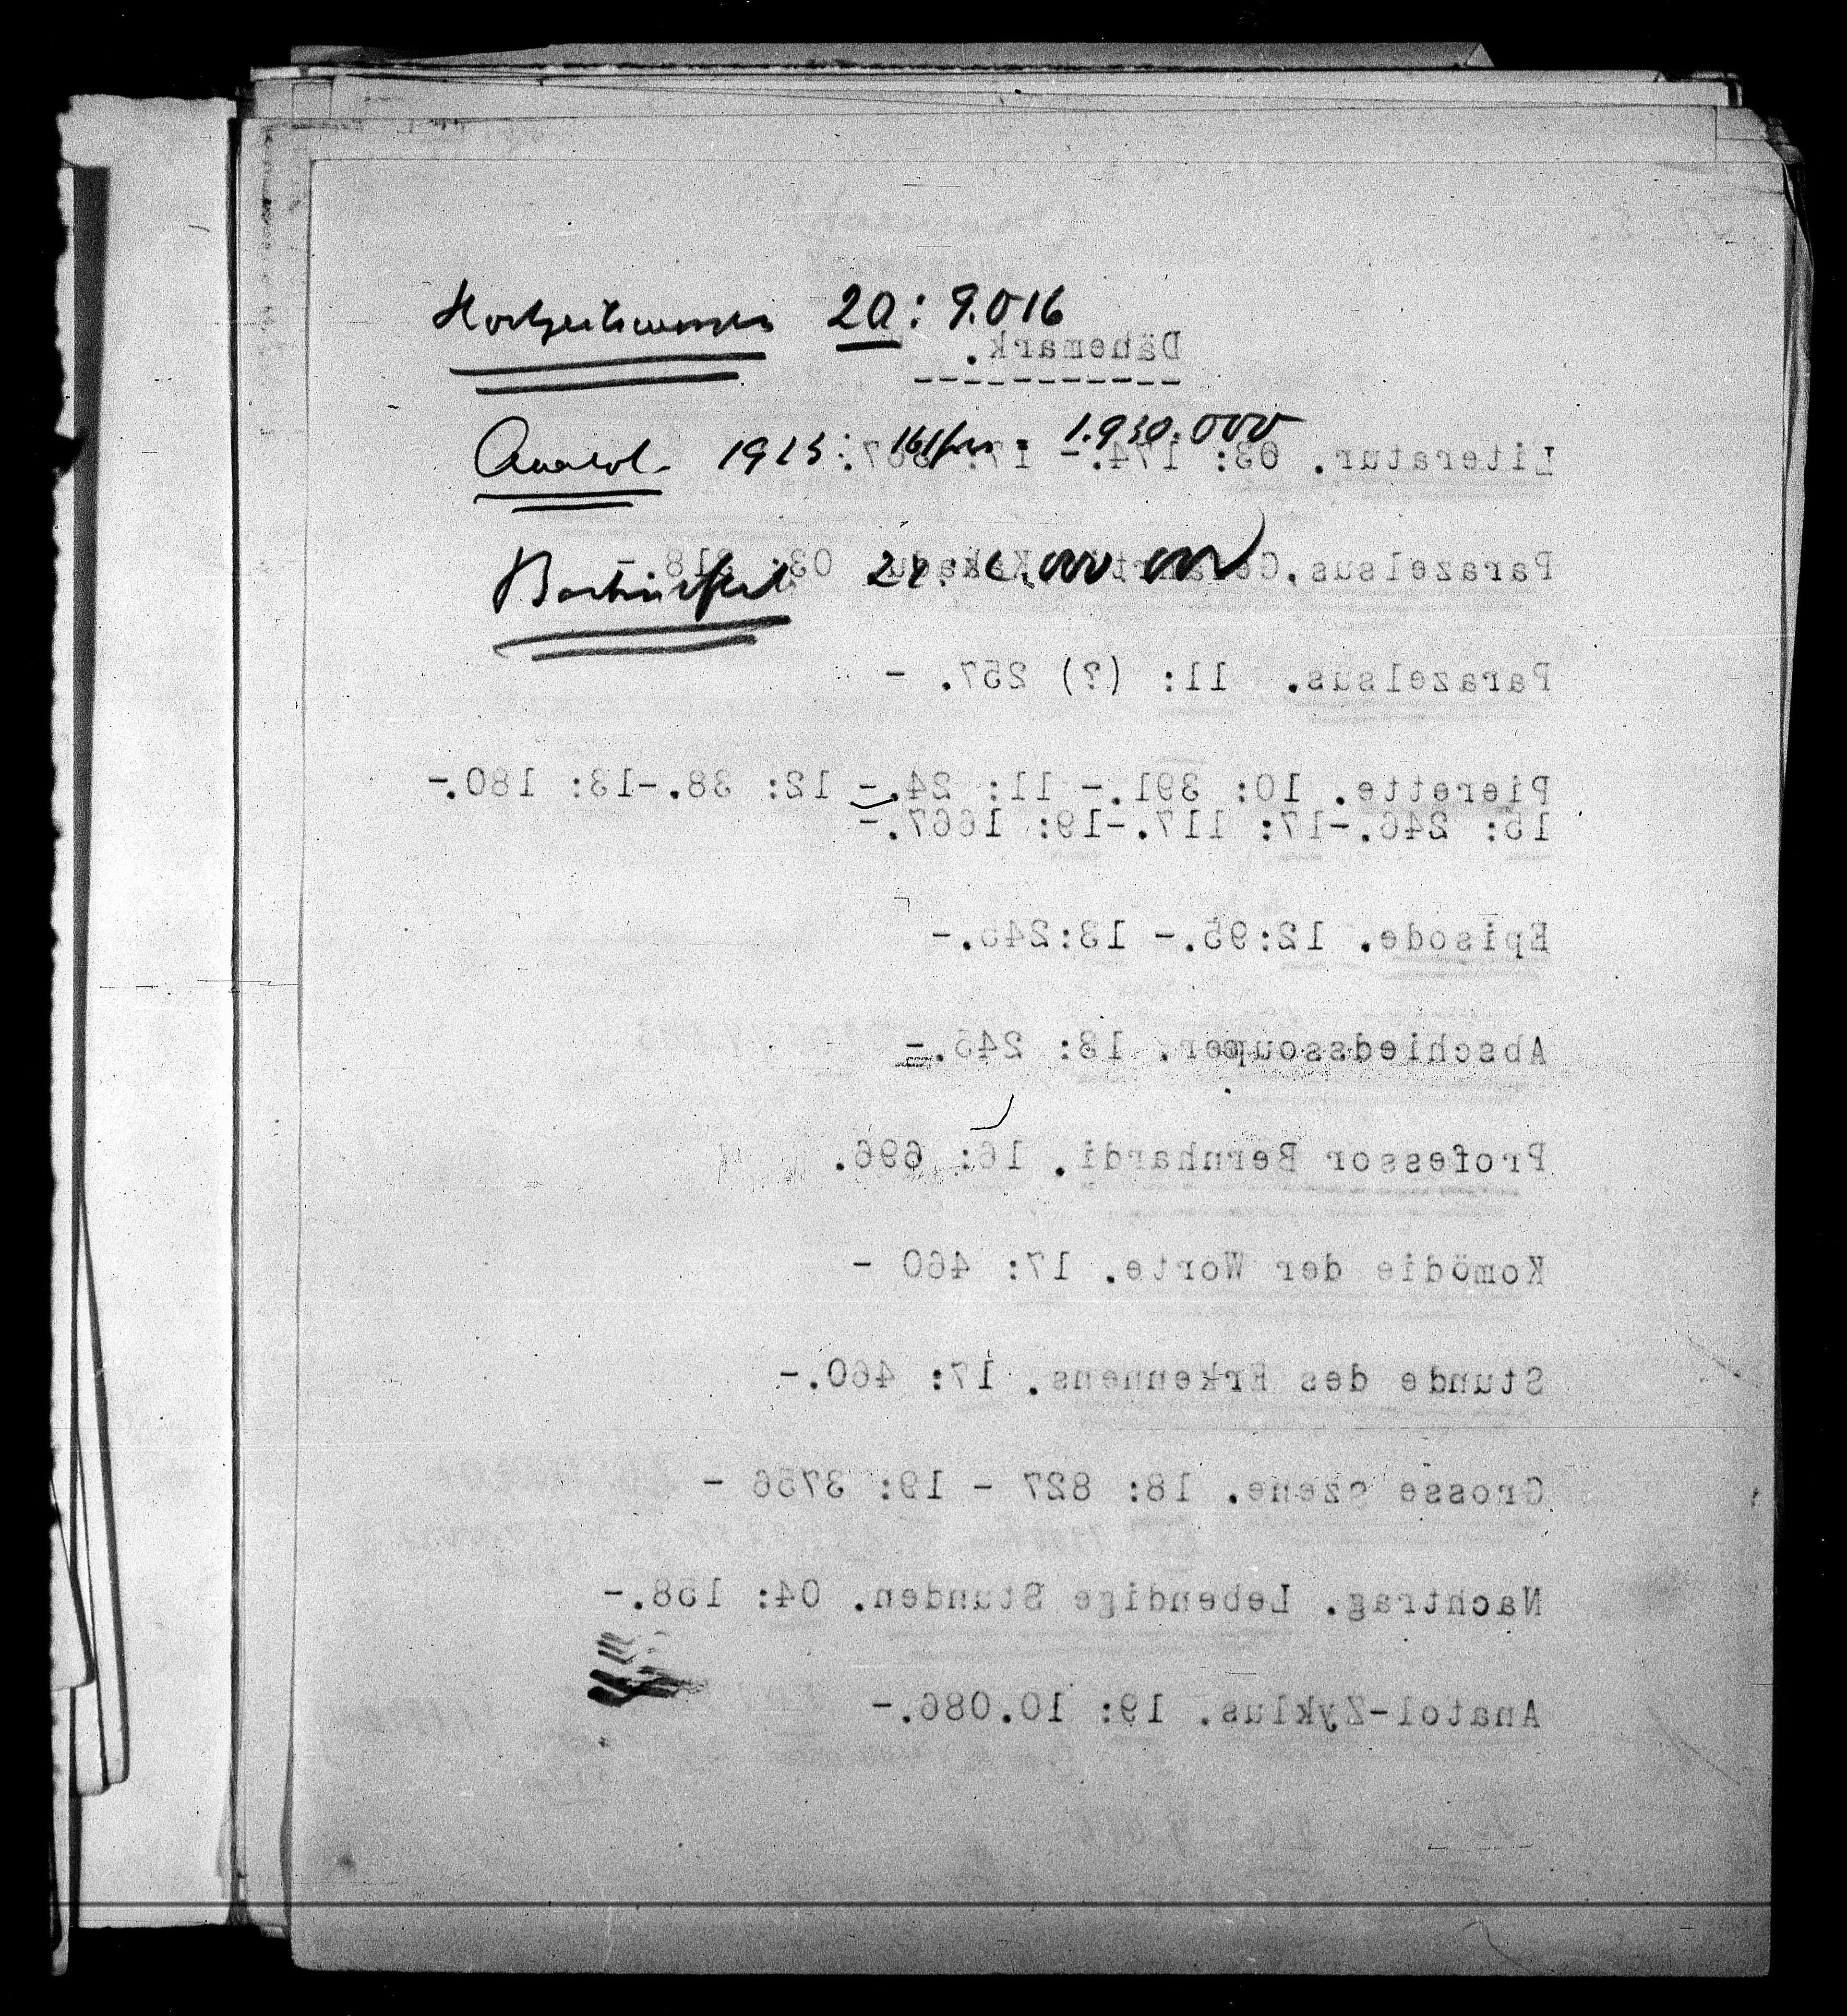 Hochzeitsmorgen 20: 9.016
Dänemark.
Anatol 1923: 161 = 1.930.000
Literatur. 03: 174.- 17:
Parazelsus, Gefährtin, Kakadu 03: 318 -
Bacchusfest 24:
Parazelsus. 11: (?) 257. -
Pierette. 10: 391.- 11: 24.- 12: 38.-13: 180.-
15: 246.-17: 117.-19: 1667.-
Episode. 12:95.- 13:245.-
Abschiedssouper. 13: 245.-
Professor Bernhardi. 16: 696.
Komödie der Worte. 17: 460 -
Stunde des Erkennens. 17: 460.-
Grosse szene. 18: 827 - 19: 3756 -
Nachtrag. Lebendige Stunden. 04: 158.-
Anatol-Zyklus. 19: 10.086.-